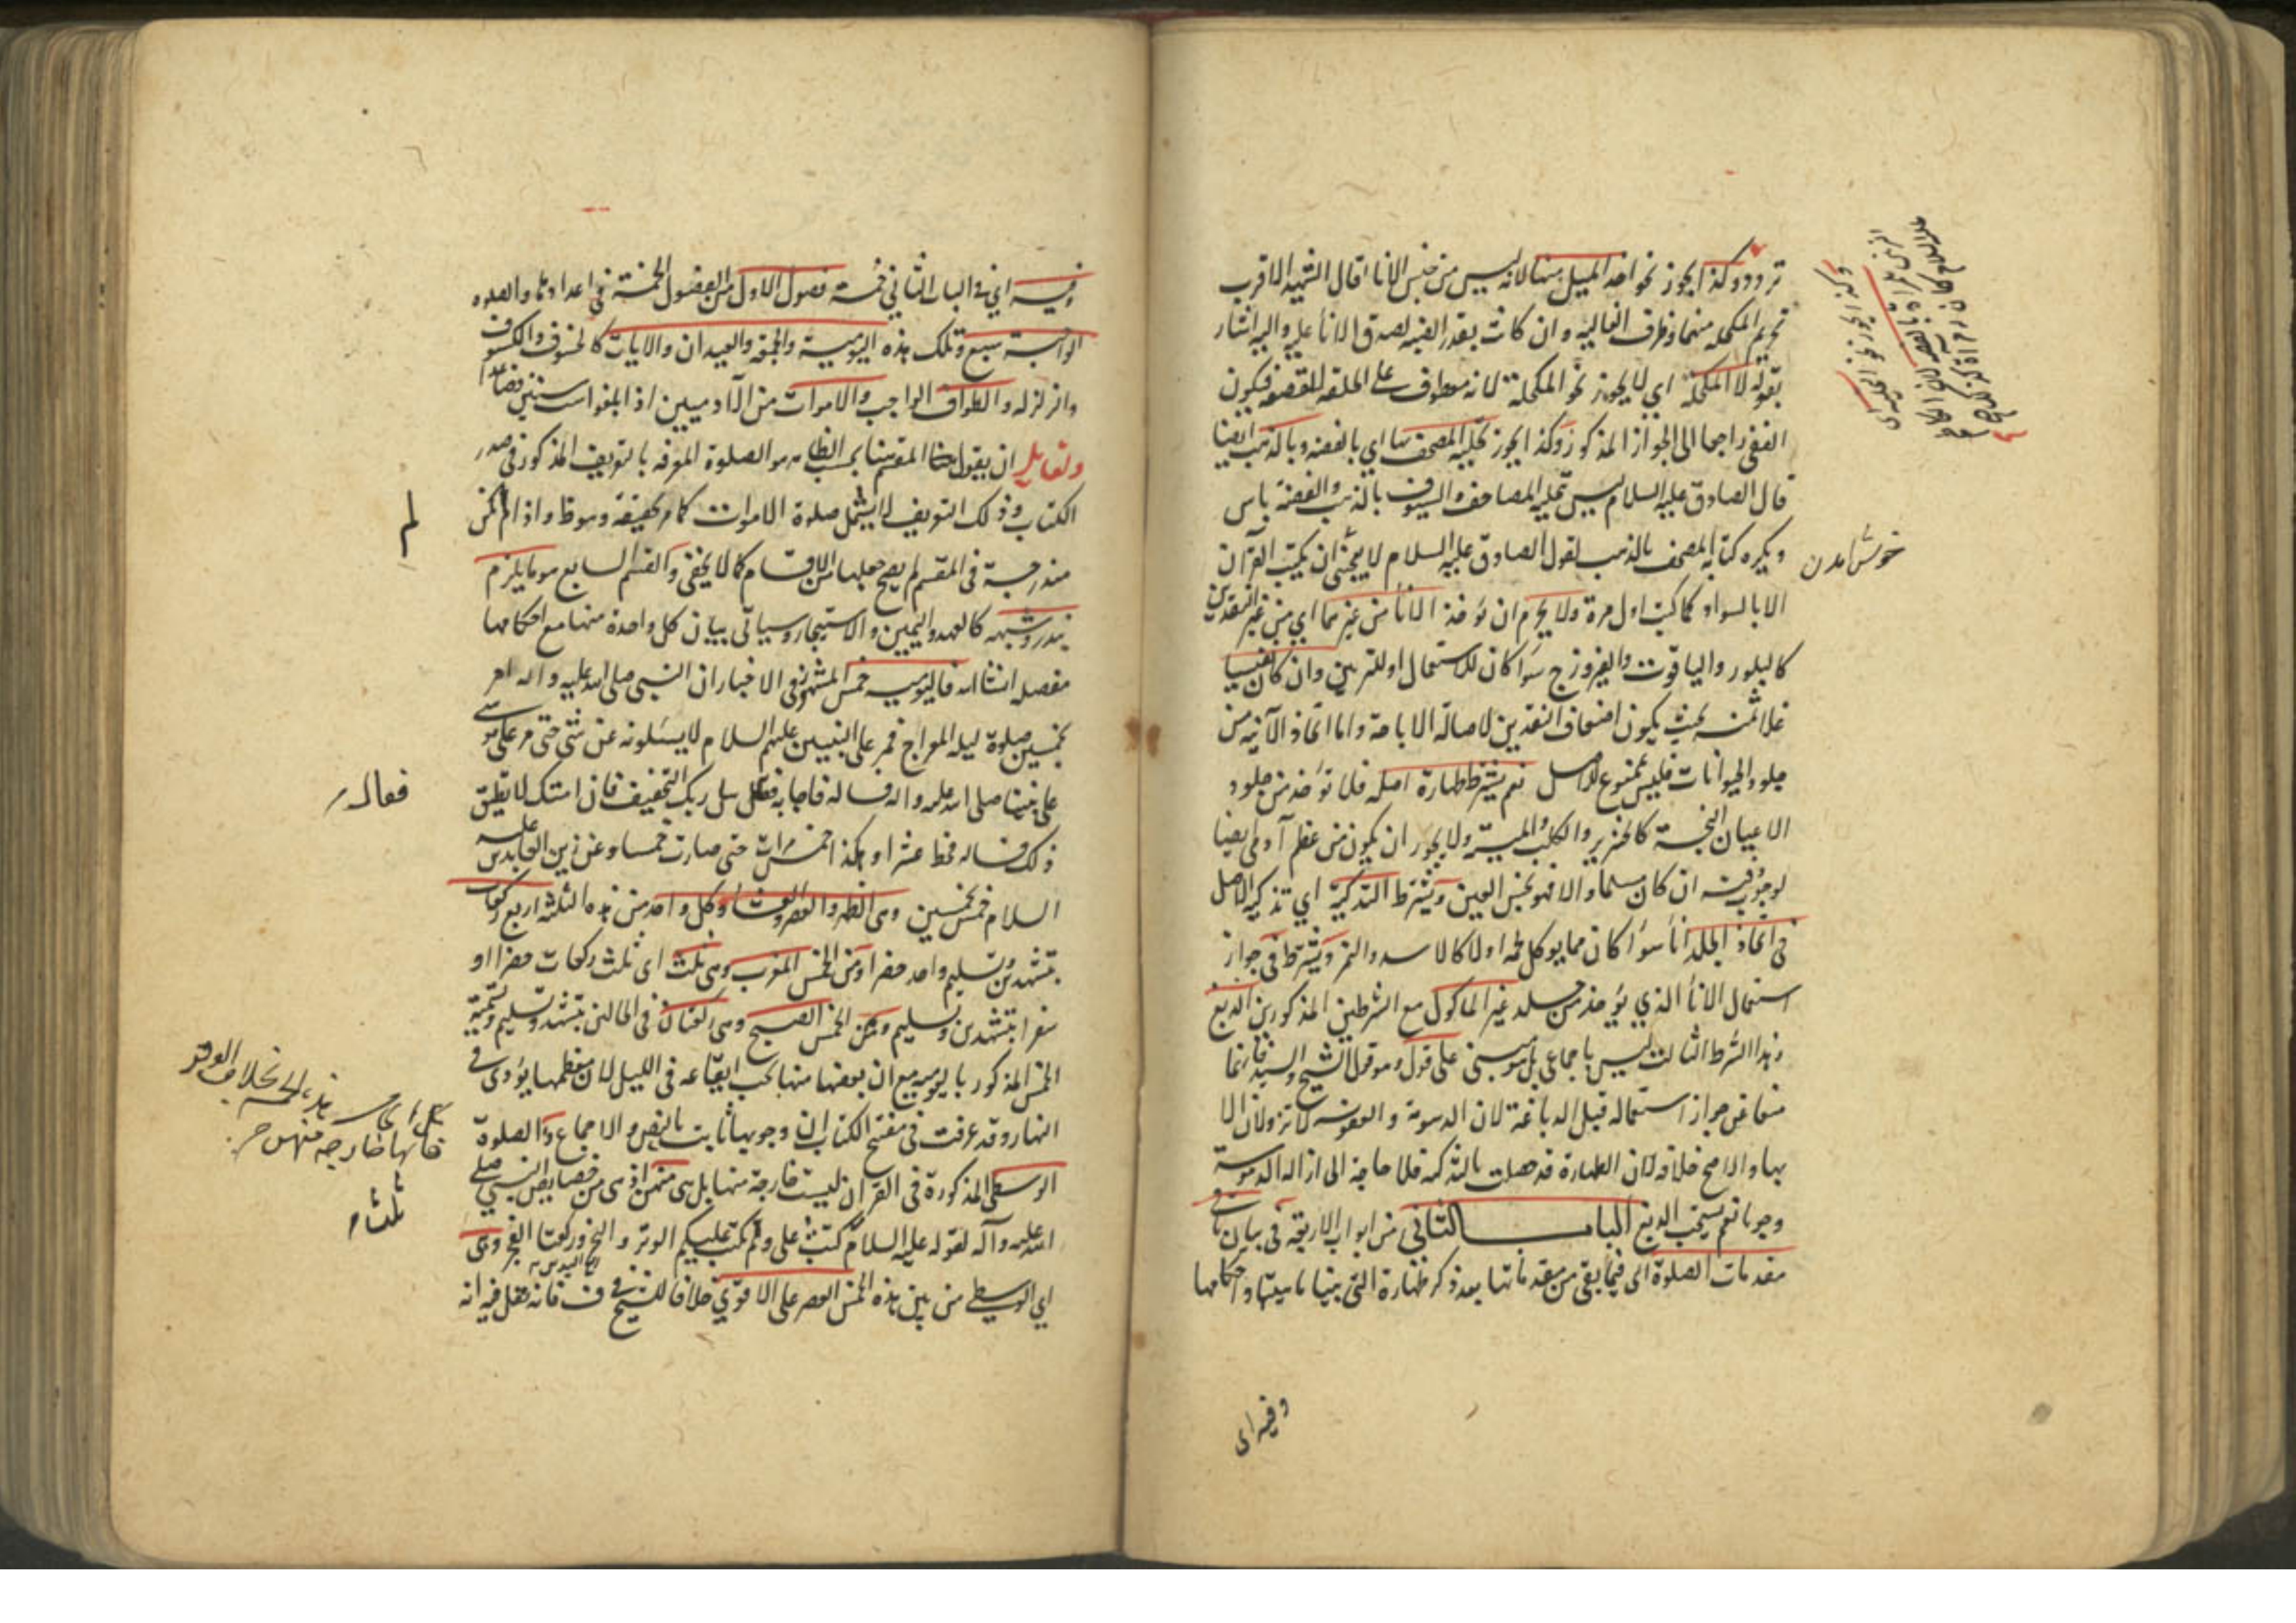 تردد وكذا يجوز نحو اخذ الميل منها لانه ليس من جنس الانا قال الشهيد الاقرب
تحريم المكحلة منهما وظرف الغالية وان كانت بقدر الضبة لصدق الاناء عليه واليه اشار
بقوله لا المكحلة اي لا يجوز نحو المكحلة لانه معطوف على الحلقة للقصعة فيكون
النفي راجعا الى الجواز المذكور وكذا يجوز تحلية المصحف بها اي بالفضة وبالذهب ايضا
قال الصادق عليه السلام ليس بتحلية المصاحف والسيوف بالذهب والفضة باس
ويكره كتابة المصحف بالذهب لقول الصادق عليه السلام لا يعجبني ان يكتب القرآن
الا بالسواد كما كتب اول مرة ولا يحرم ان يؤخذ الاناء من غيرهما اي من غير النقدين
كالبلور والياقوت والفيروزج سواء كان للاستعمال او للتزيين وان كان نفيسا
غلا ثمنه بحيث يكون اضعاف النقدين لاصالة الاباحة واما اتخاذ الآنية من
جلود الحيوانات فليس بممنوع للاصل نعم يشترط طهارة اصله فلا تؤخذ من جلود
الاعيان النجسة كالخنزير والكلب والميتة ولا يجوز ان يكون من عظم آدمي ايضا
لوجوب دفنه ان كان مسلما والا فهو نجس العين ويشترط التذكية اي تذكية الاصل
في اتخاذ الجلد اناء سواء كان مما يوكل لحمه اولا كالاسد والنمر ويشترط في جواز
استعمال الاناء الذي يؤخذ من جلد غير الماكول مع الشرطين المذكورين الدبغ
وهذا الشرط الثالث ليس باجماعي بل هو مبني على قول وهو قول الشيخ والسيد فانهما
منعا عن جواز استعماله قبل الدباغة لان الدسومة والعفونة لا تزولان الا
بها والاصح خلافه لان الطهارة قد حصلت بالتذكية فلا حاجة الى ازالة الدسومة
وجوبا نعم يستحب الدبغ الباب الثاني من ابواب الاربعة في بيان باقي
مقدمات الصلوة اي فيما بقي من مقدماتها بعد ذكر طهارة التي بينا ماهيتها واحكامها
وكذا يجوز نحو الحلقة اي
خوش آمدن
وفيه اي
وفيه اي في الباب الثاني خمسة فصول الاول من الفصول الخمسة في اعدادها والصلوة
الواجبة سبع وتلك هذه اليومية والجمعة والعيدان والايات كالخسوف والكسوف
والزلزلة والطواف الواجب والاموات من الآدميين اذا بلغوا ست سنين فصاعدا
ولقائل ان يقول المقسم هنا بحسب الظاهر هو الصلوة المعرفة بالتعريف المذكور في صدر
الكتاب وذلك التعريف لا يشمل صلوة الاموات كما مر تحقيقه وسوقا واذا لم تكن
مندرجة في المقسم لم يصح جعلها من الاقسام كما لا يخفى والقسم السابع هو ما يلزم
بنذر وشبهه كالعهد واليمين والاستيجار وسياتي بيان كل واحدة منها مع احكامها
مفصلة انشاء الله فاليومية خمس المشهور في الاخبار ان النبي صلى الله عليه واله امر
بخمسين صلوة ليلة المعراج فمر على النبيين عليهم السلام لا يسئلونه عن شئ حتى مر على موسى
على نبينا صلى الله عليه واله فساله فاجابه فقال سل ربك التخفيف فان امتك لا تطيق
ذلك فساله فحط عشرا وهكذا خمس مرات حتى صارت خمسا وعن زين العابدين عليه
السلام خمس بخمسين وهي الظهر والعصر والعشاء وكل واحد من هذه الثلثة اربع ركعات
بتشهدين وتسليم واحد حضرا ومن الخمس المغرب وهي ثلث اي ثلث ركعات حضرا او
سفرا بتشهدين وتسليم ومن الخمس الصبح وهي ركعتان في الحالين بتشهد وتسليم وتسمية
الخمس المذكور باليومية مع ان بعضها منها يجب ايقاعه في الليل لان معظمها يؤدى في
النهار وقد عرفت في مفتتح الكتاب ان وجوبها ثابت بالنص والاجماع والصلوة
الوسطى المذكورة في القرآن ليست خارجة منها بل هي منهن اذ هي من خصايص النبي صلى
الله عليه وآله لقوله عليه السلام كتبت علي ولم تكتب عليكم الوتر والنحر وركعتا الفجر وهي
اي الوسطى من بين هذه الخمس العصر على الاقوى خلافا للشيخ في ف فانه نقل فيه انه
لم
فقال له
بخلاف الوتر
فانها خارجة منهن
ثلثة